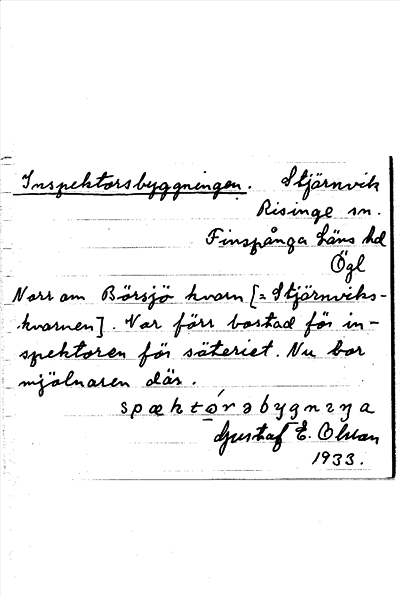 Inspektorsbyggningen. Stjärnvik
Risinge sn.
Finspånga läns hd
Ögl
Norr om Börsjö kvarn [= Stjärnviks-
kvarnen]. Var förr bostad för in-
spektoren för säteriet. Nu bor
mjölnaren där.
Gustaf E. Olsson
1933.